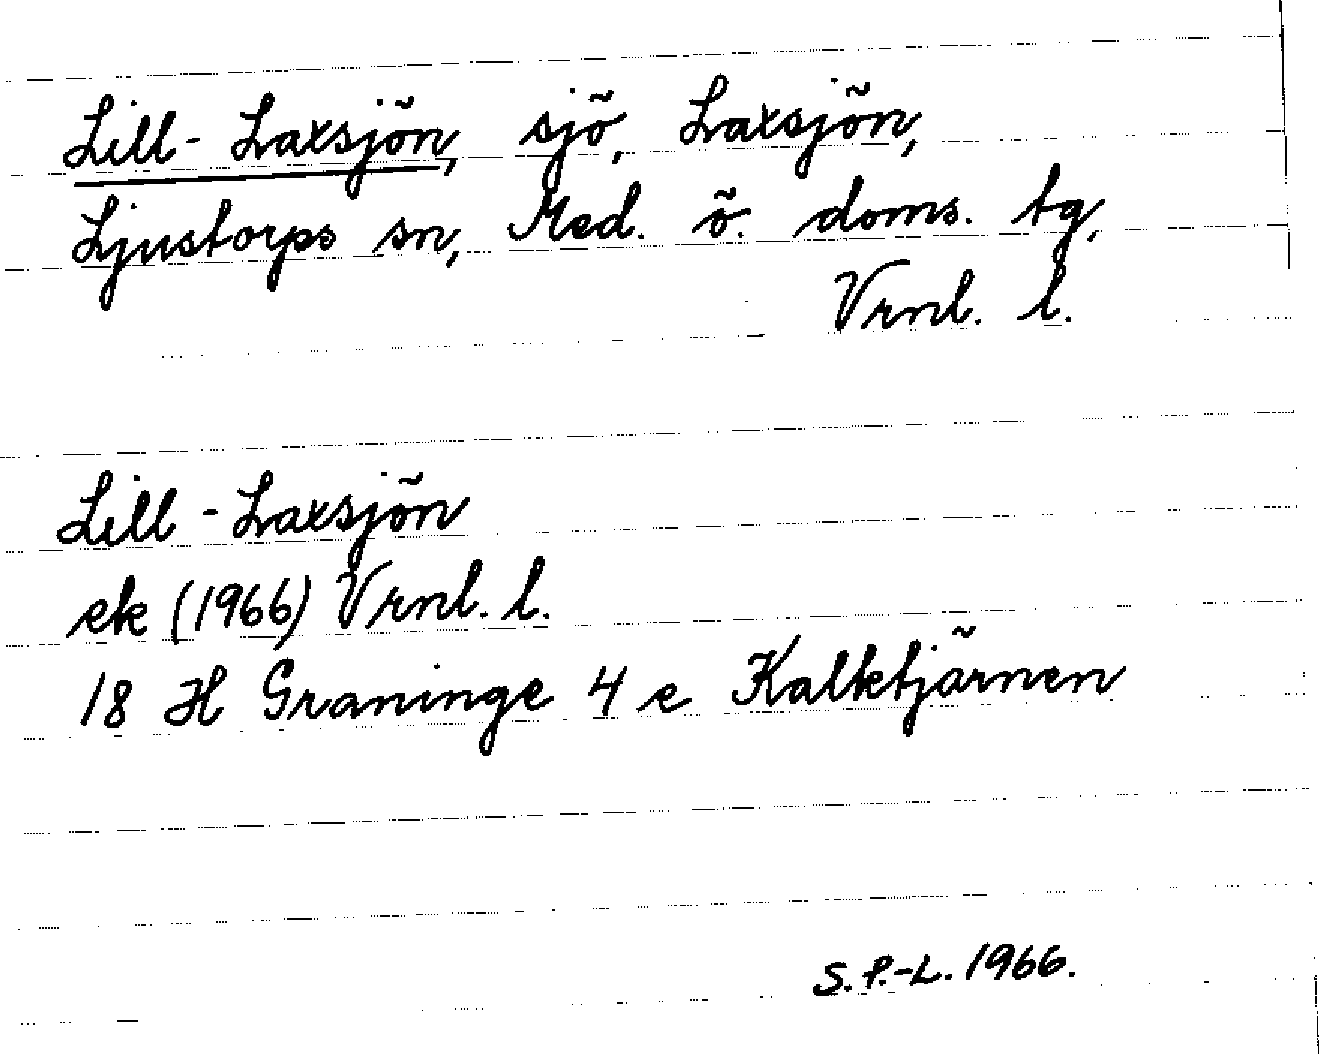 Lill-Laxsjön, sjö, Laxsjön,
Ljustorps sn, Med. ö. doms. tg,
Vrnl. l.
Lill-Laxsjön
ek (1966) Vrnl. l.
18 H Graninge 4 e Kalktjärnen
S.P.-L. 1966.